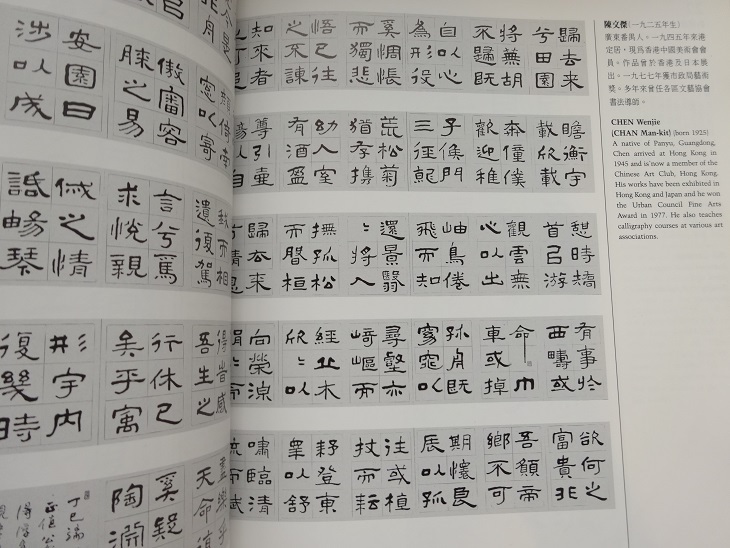 歸去來
兮田園
將蕪胡
不歸既
自以心
為形役
奚惆悵
而獨悲
悟已往
之不諫
知來者
之可追
瞻衡宇
載欣載
奔僮僕
歡迎稚
子候門
三徑就
荒松菊
猶存攜
幼入室
有酒盈
尊引壺
憩時矯
首㠯游
觀雲無
心以出
岫鳥倦
飛而知
還景翳
〻將入
撫孤松
而盤桓
歸去來
有事於
西疇或
命巾
車或掉
孤舟既
窈窕以
尋壑亦
崎嶇而
經丘木
欣〻以
向榮涼
欲何之
富貴非
吾願帝
鄉不可
期懷良
辰以孤
往或植
杖而耘
耔登東
皋以舒
嘯臨清
流而賦
倚南
窓以寄
傲審容
膝之易
安園日
涉以成
我而相
遺復駕
言兮焉
求悅親
戚之情
話暢琴
得皆感
吾生之
行休已
矣乎寓
形宇內
復幾時
盡樂乎
天命復
奚疑
陶淵
丁巳
陳文傑(一九二五年生)
廣東番禺人。一九四五年來港
定居,現爲香港中國美術會會
員。作品曾於香港及日本展
出。一九七七年獲市政局藝術
獎。多年來曾任各區文藝協會
書法導師。
CHEN Wenjie
(CHAN Man-kit) (born 1925)
A native of Panyu, Guangdong,
Chen arrived at Hong Kong in
1945 and is now a member of the
Chinese Art Club, Hong Kong.
His works have been exhibited in
Hong Kong and Japan and he won
the Urban Council Fine Arts
Award in 1977. He also teaches
calligraphy courses at various art
associations.